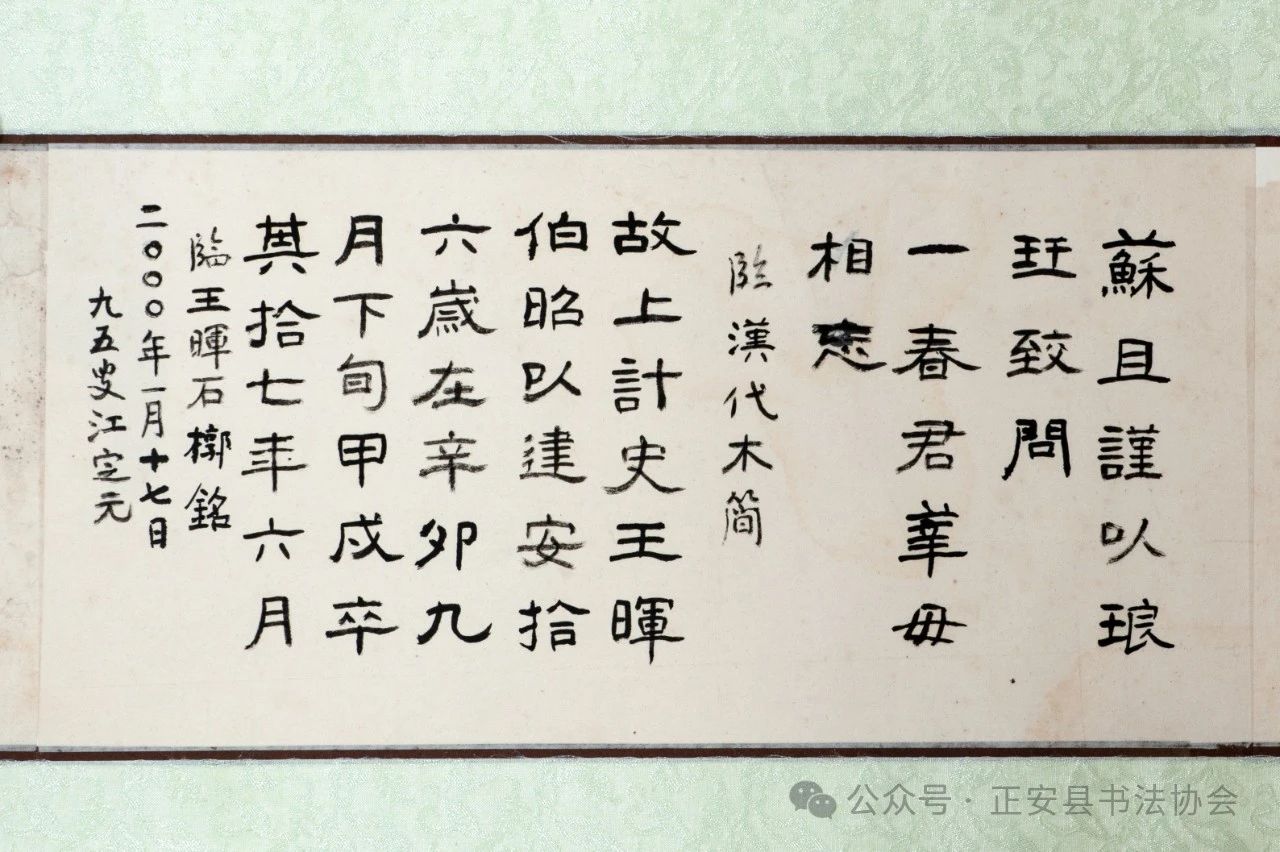 蘇且謹以琅
玨致問
一春君華毋
相忘
臨漢代木簡
故上計史王暉
伯昭以建安拾
六歲在辛卯九
月下旬甲戌卒
其拾七年六月
臨王暉石槨銘
二〇〇〇年一月十七日
九五叟江定元
公众号·正安县书法协会